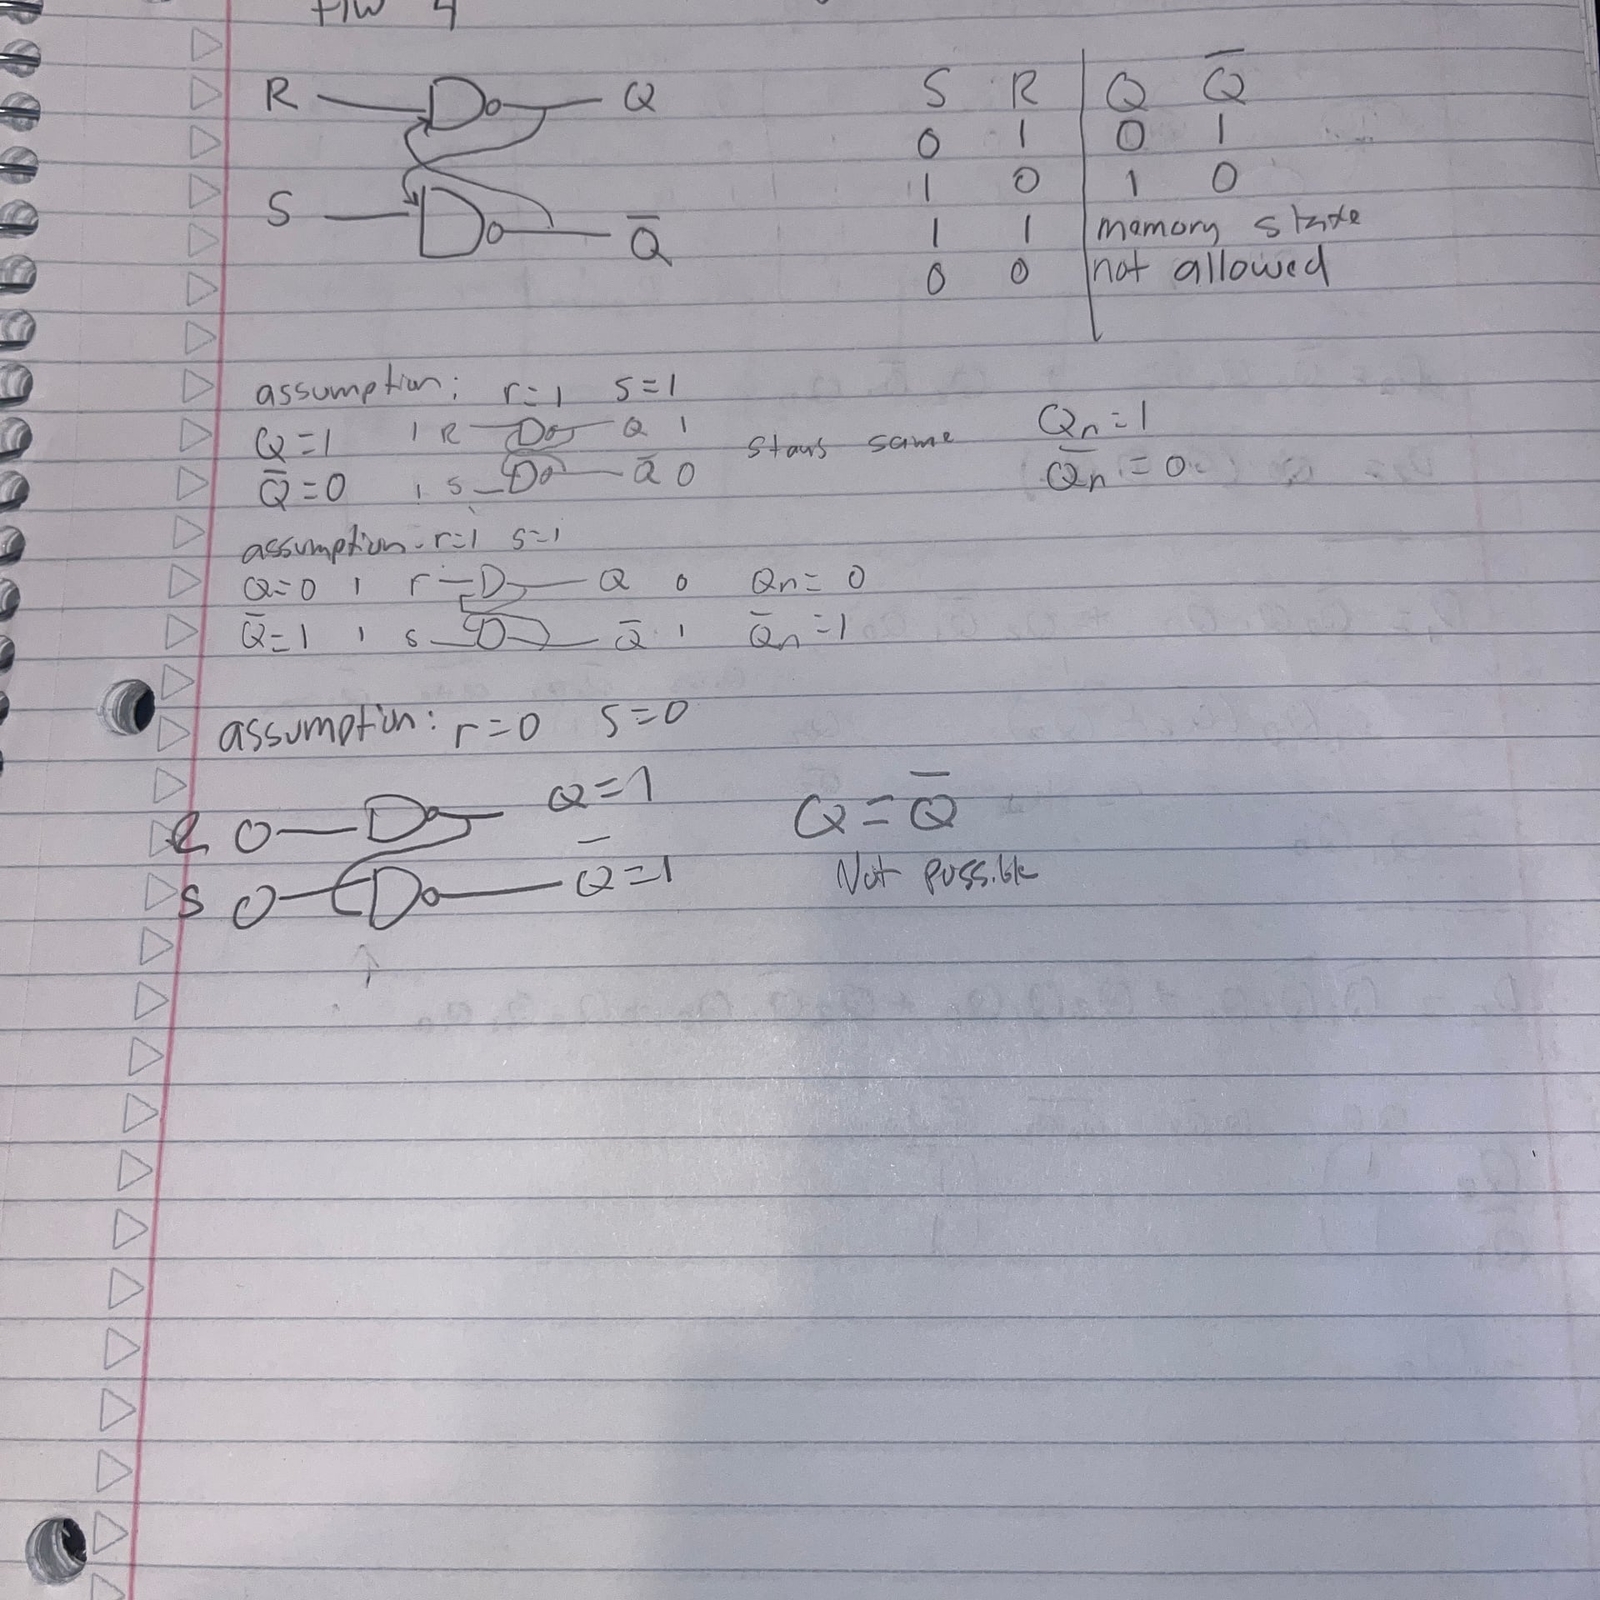 HW 4
R Q S R Q Q̅
0 1 0 1
1 0 1 0
S Q̅ 1 1 memory state
0 0 not allowed
assumption: r=1 s=1
Q=1 1 R Q 1 stays same Qn=1
Q̅=0 1 S Q̅ 0 Q̅n=0
assumption - r=1 s=1
Q=0 1 r Q 0 Qn=0
Q̅=1 1 s Q̅ 1 Q̅n=1
assumption: r=0 s=0
R 0 Q=1 Q=Q̅
S 0 Q̅=1 Not possible